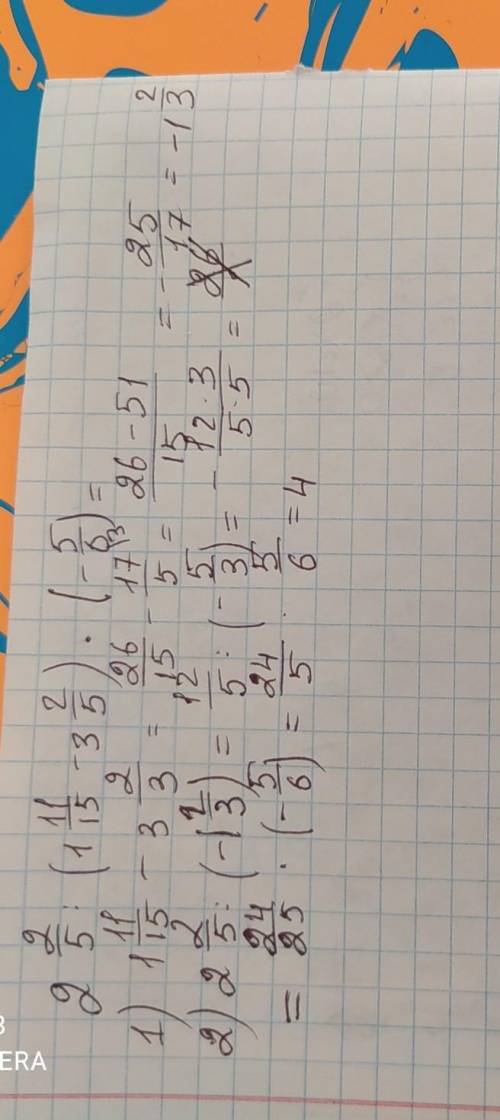 2 2/5 : (1 11/15 - 3 2/5) · (- 5/6) =
1) 1 11/15 - 3 2/3 = 26/15 - 17/5 = (26 - 51)/15 = - 25/17 = - 1 2/3
2) 2 2/5 : (-1 2/3) = 12/5 : (- 5/3) = - (12 · 3)/(5 · 5) =
= 24/25 · (- 5/6) = 24/5 · 5/6 = 4
ERA